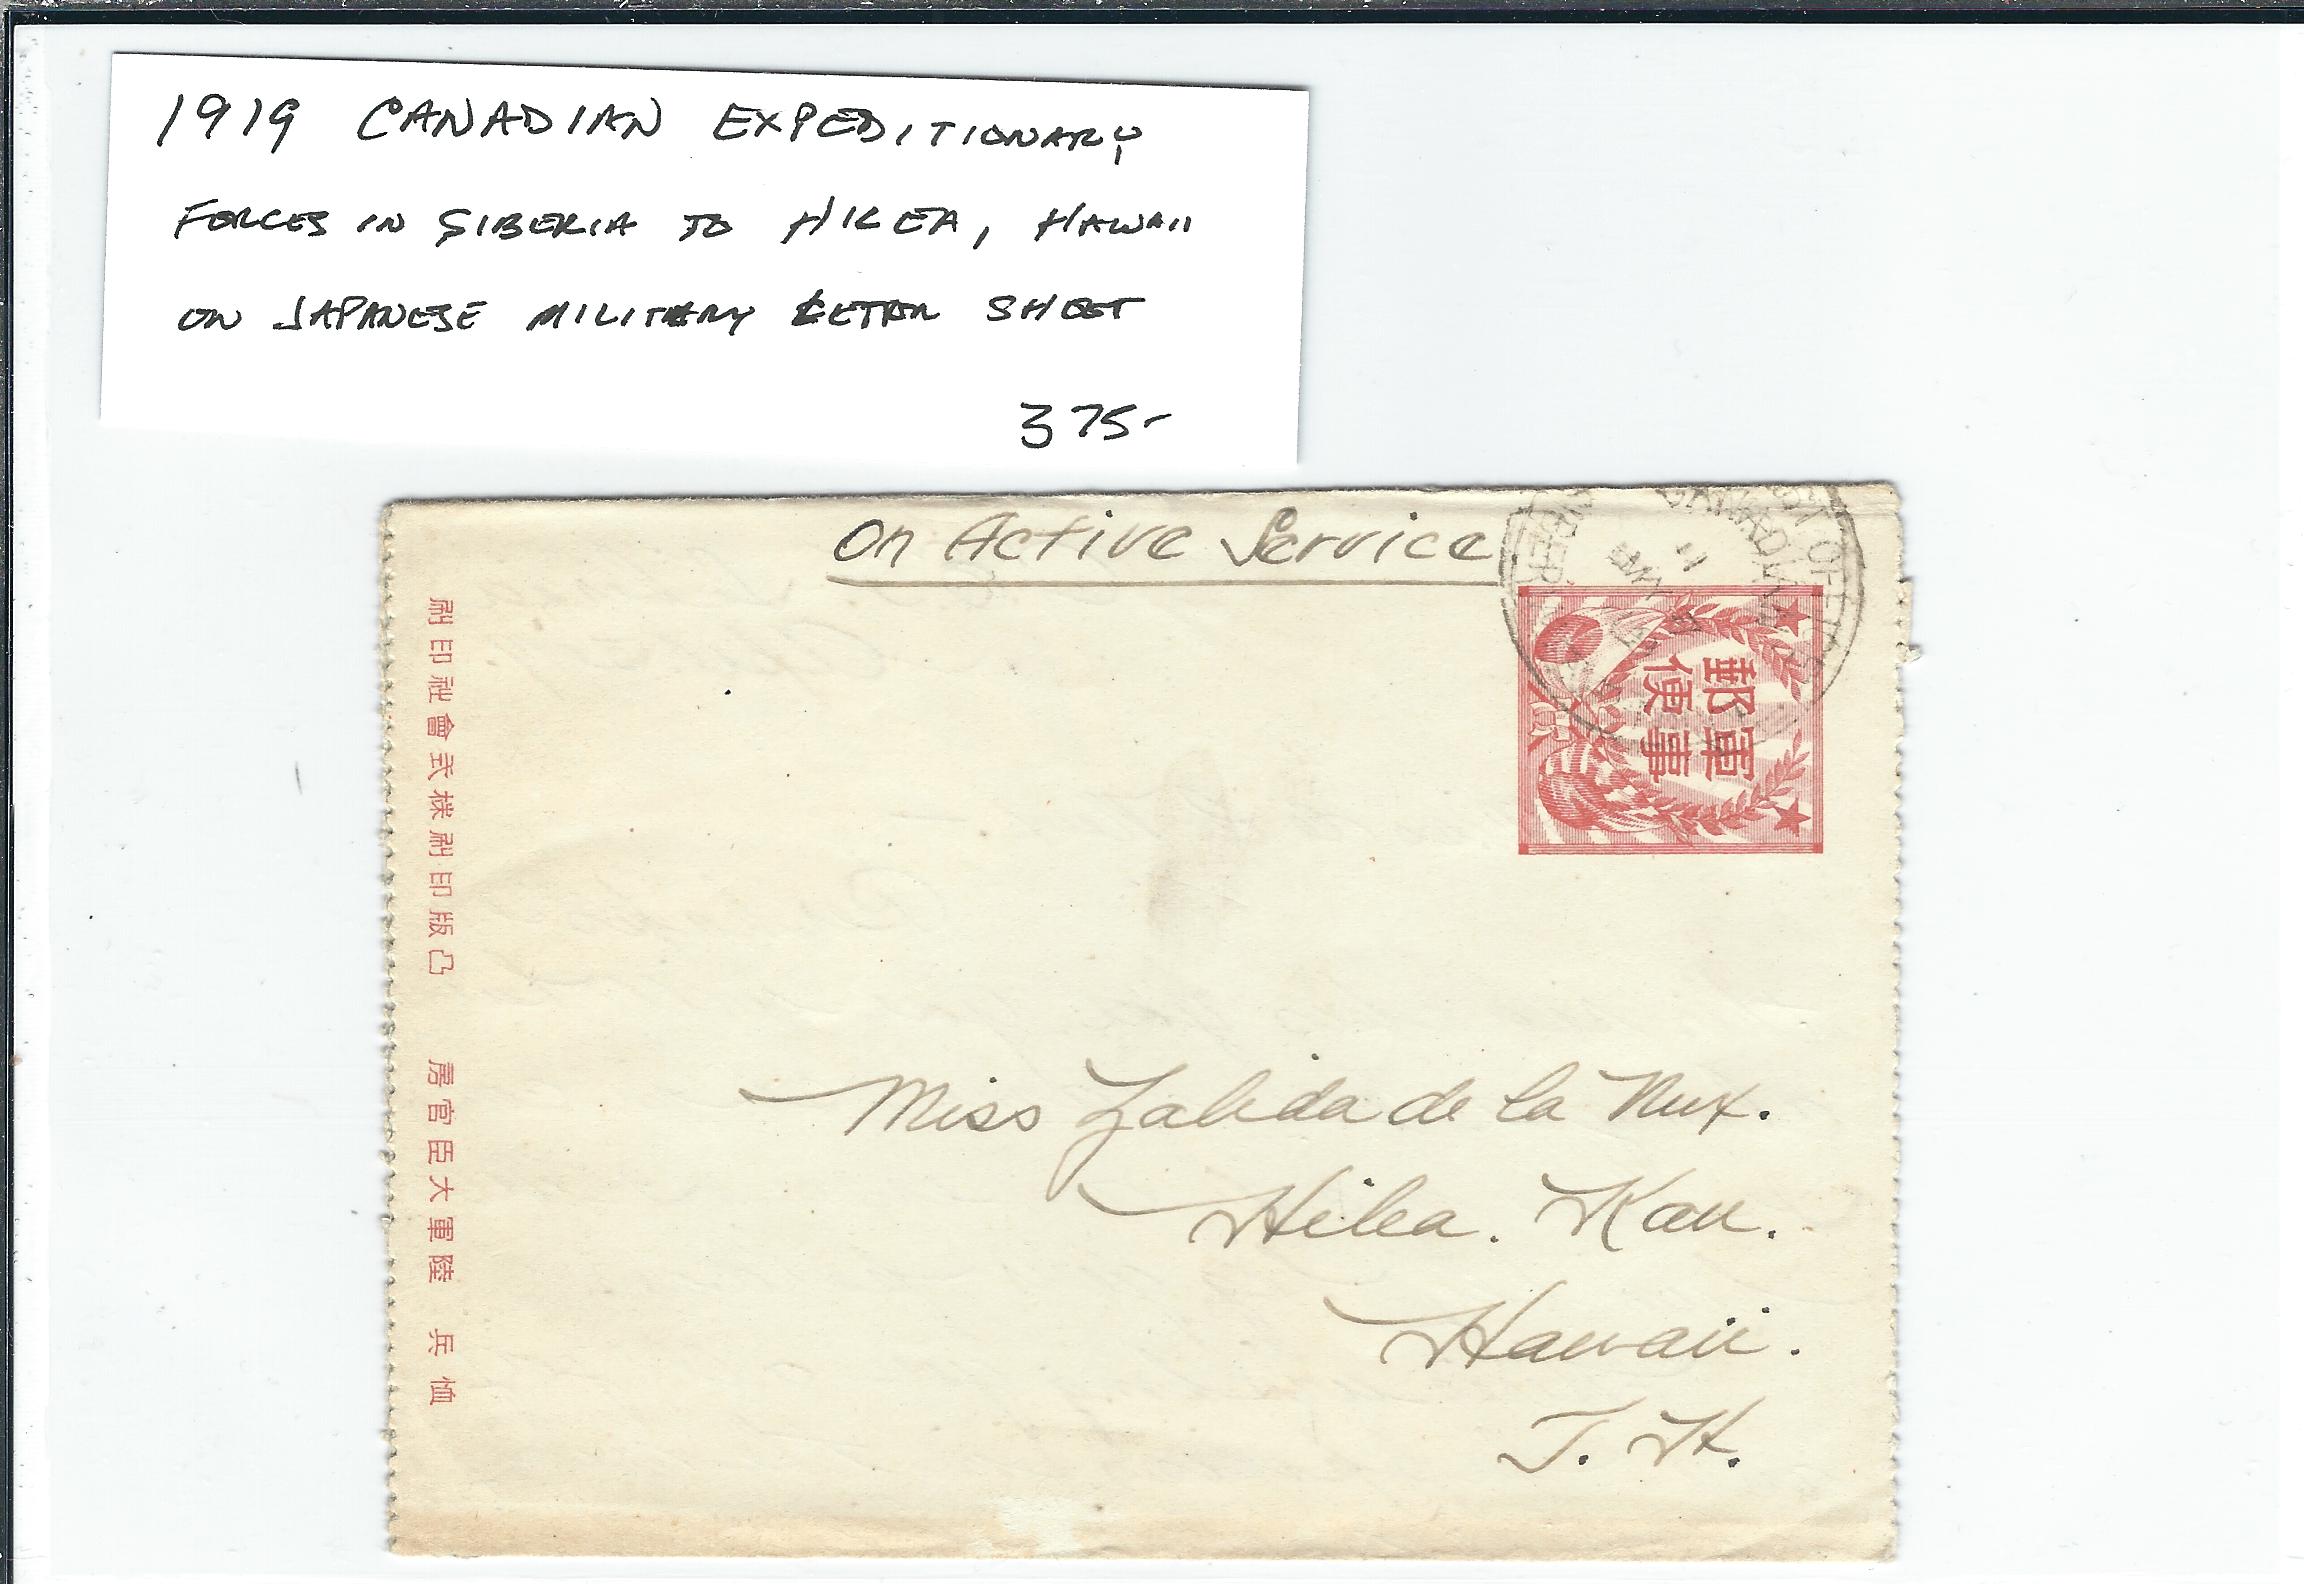 1919 CANADIAN EXPEDITIONARY
FORCES IN SIBERIA TO HILEA, HAWAII
ON JAPANESE MILITARY LETTER SHEET
375-
On Active Service.
CANADIAN
軍事
郵便
Miss Zalida de la Nux.
Hilea. Kau.
Hawaii.
T. H.
恤兵 陸軍大臣官房 凸版印刷株式會社印刷